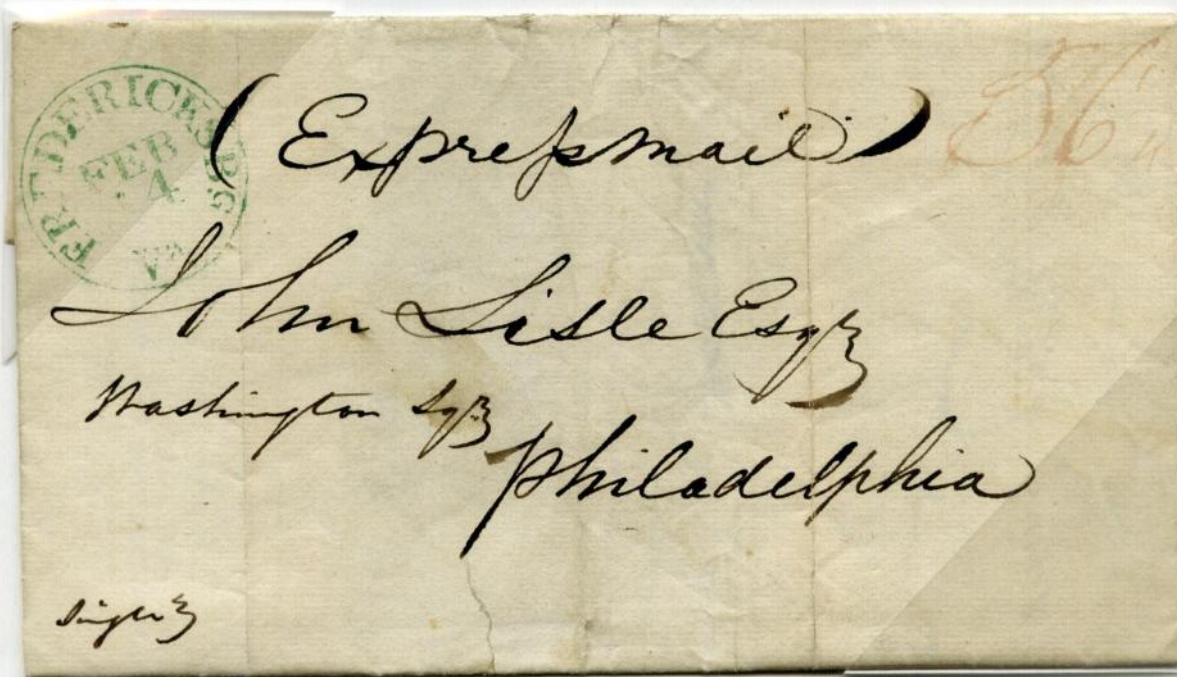 FREDERICKSBG.
FEB
4
Va
(Expreſsmail)
John Lisle Esqr
Washington Sqr
Philadelphia
Single